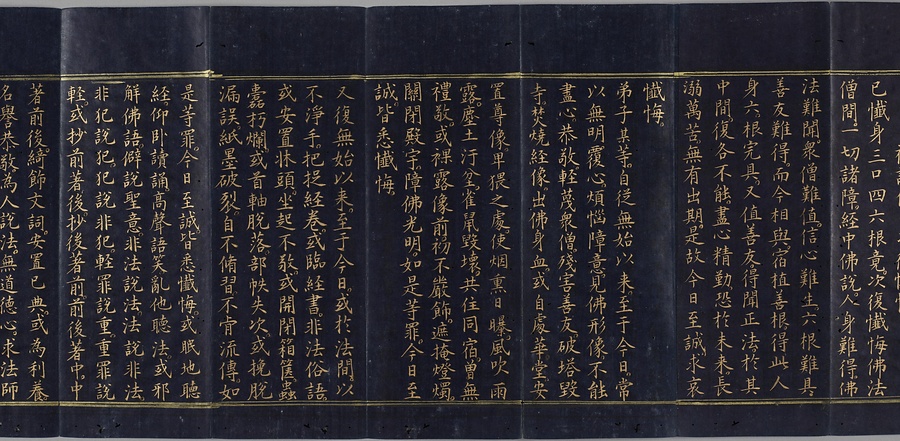 已懺身三口四六根竟次復懺悔佛法
僧間一切諸障經中佛說人身難得佛
法難聞衆僧難值信心難生六根難具
善友難得而今相與宿植善根得此人
身六根完具又值善友得聞正法於其
中間復各不能盡心精勤恐於未來長
溺萬苦無有出期是故今日至誠求哀
懺悔
弟子某等自從無始以來至于今日常
以無明覆心煩惱障意見佛形像不能
盡心恭敬輕蔑衆僧殘害善友破塔毀
寺焚燒經像出佛身血或自處華堂安
置尊像卑猥之處使烟熏日曝風吹雨
露塵土汙坌雀鼠毀壞共住同宿曾無
禮敬或裸露像前初不嚴飾遮掩燈燭
關閉殿宇障佛光明如是等罪今日至
誠皆悉懺悔
又復無始以来至于今日或於法間以
不淨手把捉經卷或臨經書非法俗語
或安置牀頭坐起不敬或開閉箱篋蟲
蠹朽爛或首軸脫落部帙失次或挽脫
漏誤紙墨破裂自不脩習不肯流傳如
是等罪今日至誠皆悉懺悔或眠地聽
經仰卧讀誦高聲語笑亂他聽法或邪
解佛語僻說聖意非法說法法說非法
非犯說犯犯說非犯輕罪說重重罪說
輕或抄前著後抄後著前前後著中中
著前後綺飾文詞安置己典或為利養
名譽恭敬為人說法無道德心求法師